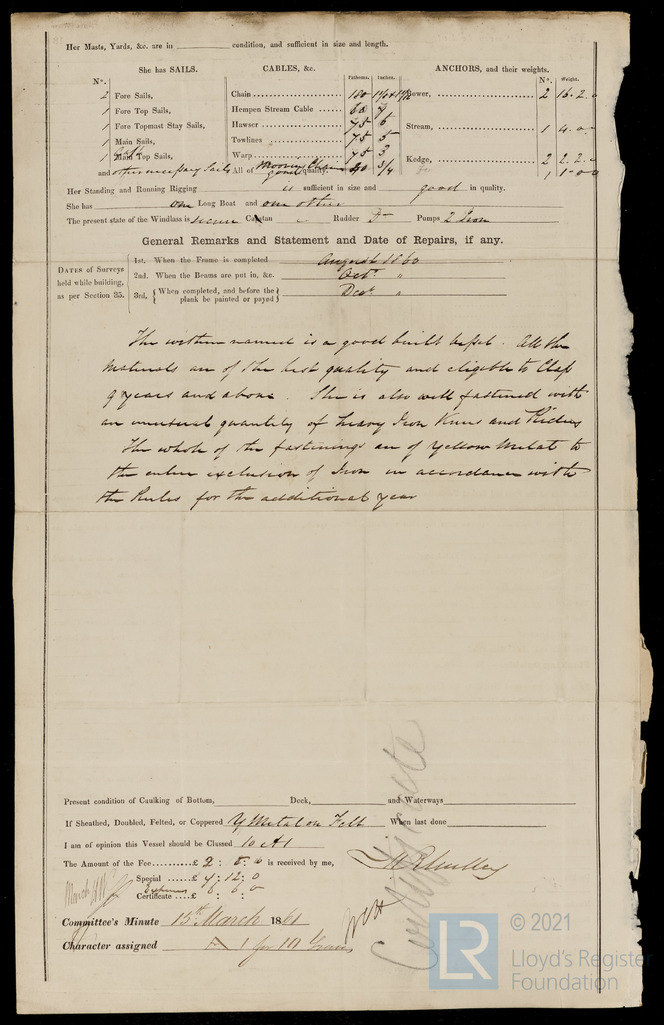 Her Masts, Yards, &c. are in condition, and sufficient in size and length.
She has SAILS.
CABLES, &c.
Fathoms. Inches.
ANCHORS, and their weights.
Nº. Weight.
Nº.
2 Fore Sails,
1 Fore Top Sails,
1 Fore Topmast Stay Sails,
1 Main Sails,
1 Main Top Sails,
and other necessary Sails
Chain 180
Hempen Stream Cable 60 7
Hawser 75 6
Towlines 75 5
Warp 75 3
All of good quality. Mooring Chain 3/4
Bower, 2 16.2.
Stream, 1 4.0.0
Kedge, 2 2.2.
1 1.0.0
Her Standing and Running Rigging is sufficient in size and good in quality.
She has one Long Boat and one other
The present state of the Windlass is secure Capstan Rudder Do Pumps 2 Iron
General Remarks and Statement and Date of Repairs, if any.
DATES of Surveys held while building, as per Section 35.
1st. When the Frame is completed August 1860
2nd. When the Beams are put in, &c. Octr "
3rd, { When completed, and before the plank be painted or payed } Decr "
The within named is a good built vessel. All the
materials are of the best quality and eligible to Class
9 years and above. She is also well fastened with
an unusual quantity of heavy Iron Knees and Riders
The whole of the fastenings are of Yellow Metal to
the entire exclusion of Iron in accordance with
the Rules for the additional year
Present condition of Caulking of Bottom, Deck, and Waterways
If Sheathed, Doubled, Felted, or Coppered Y Metal on Felt When last done
I am of opinion this Vessel should be Classed 10 A1
The Amount of the Fee £ 2 : 0 : 0 is received by me,
Special £ 4 : 12 : 0
Expenses
Certificate £ : :
Committee's Minute 15th March 1861
Character assigned A 1 for 10 Years
Certificate
LR
© 2021
Lloyd's Register
Foundation